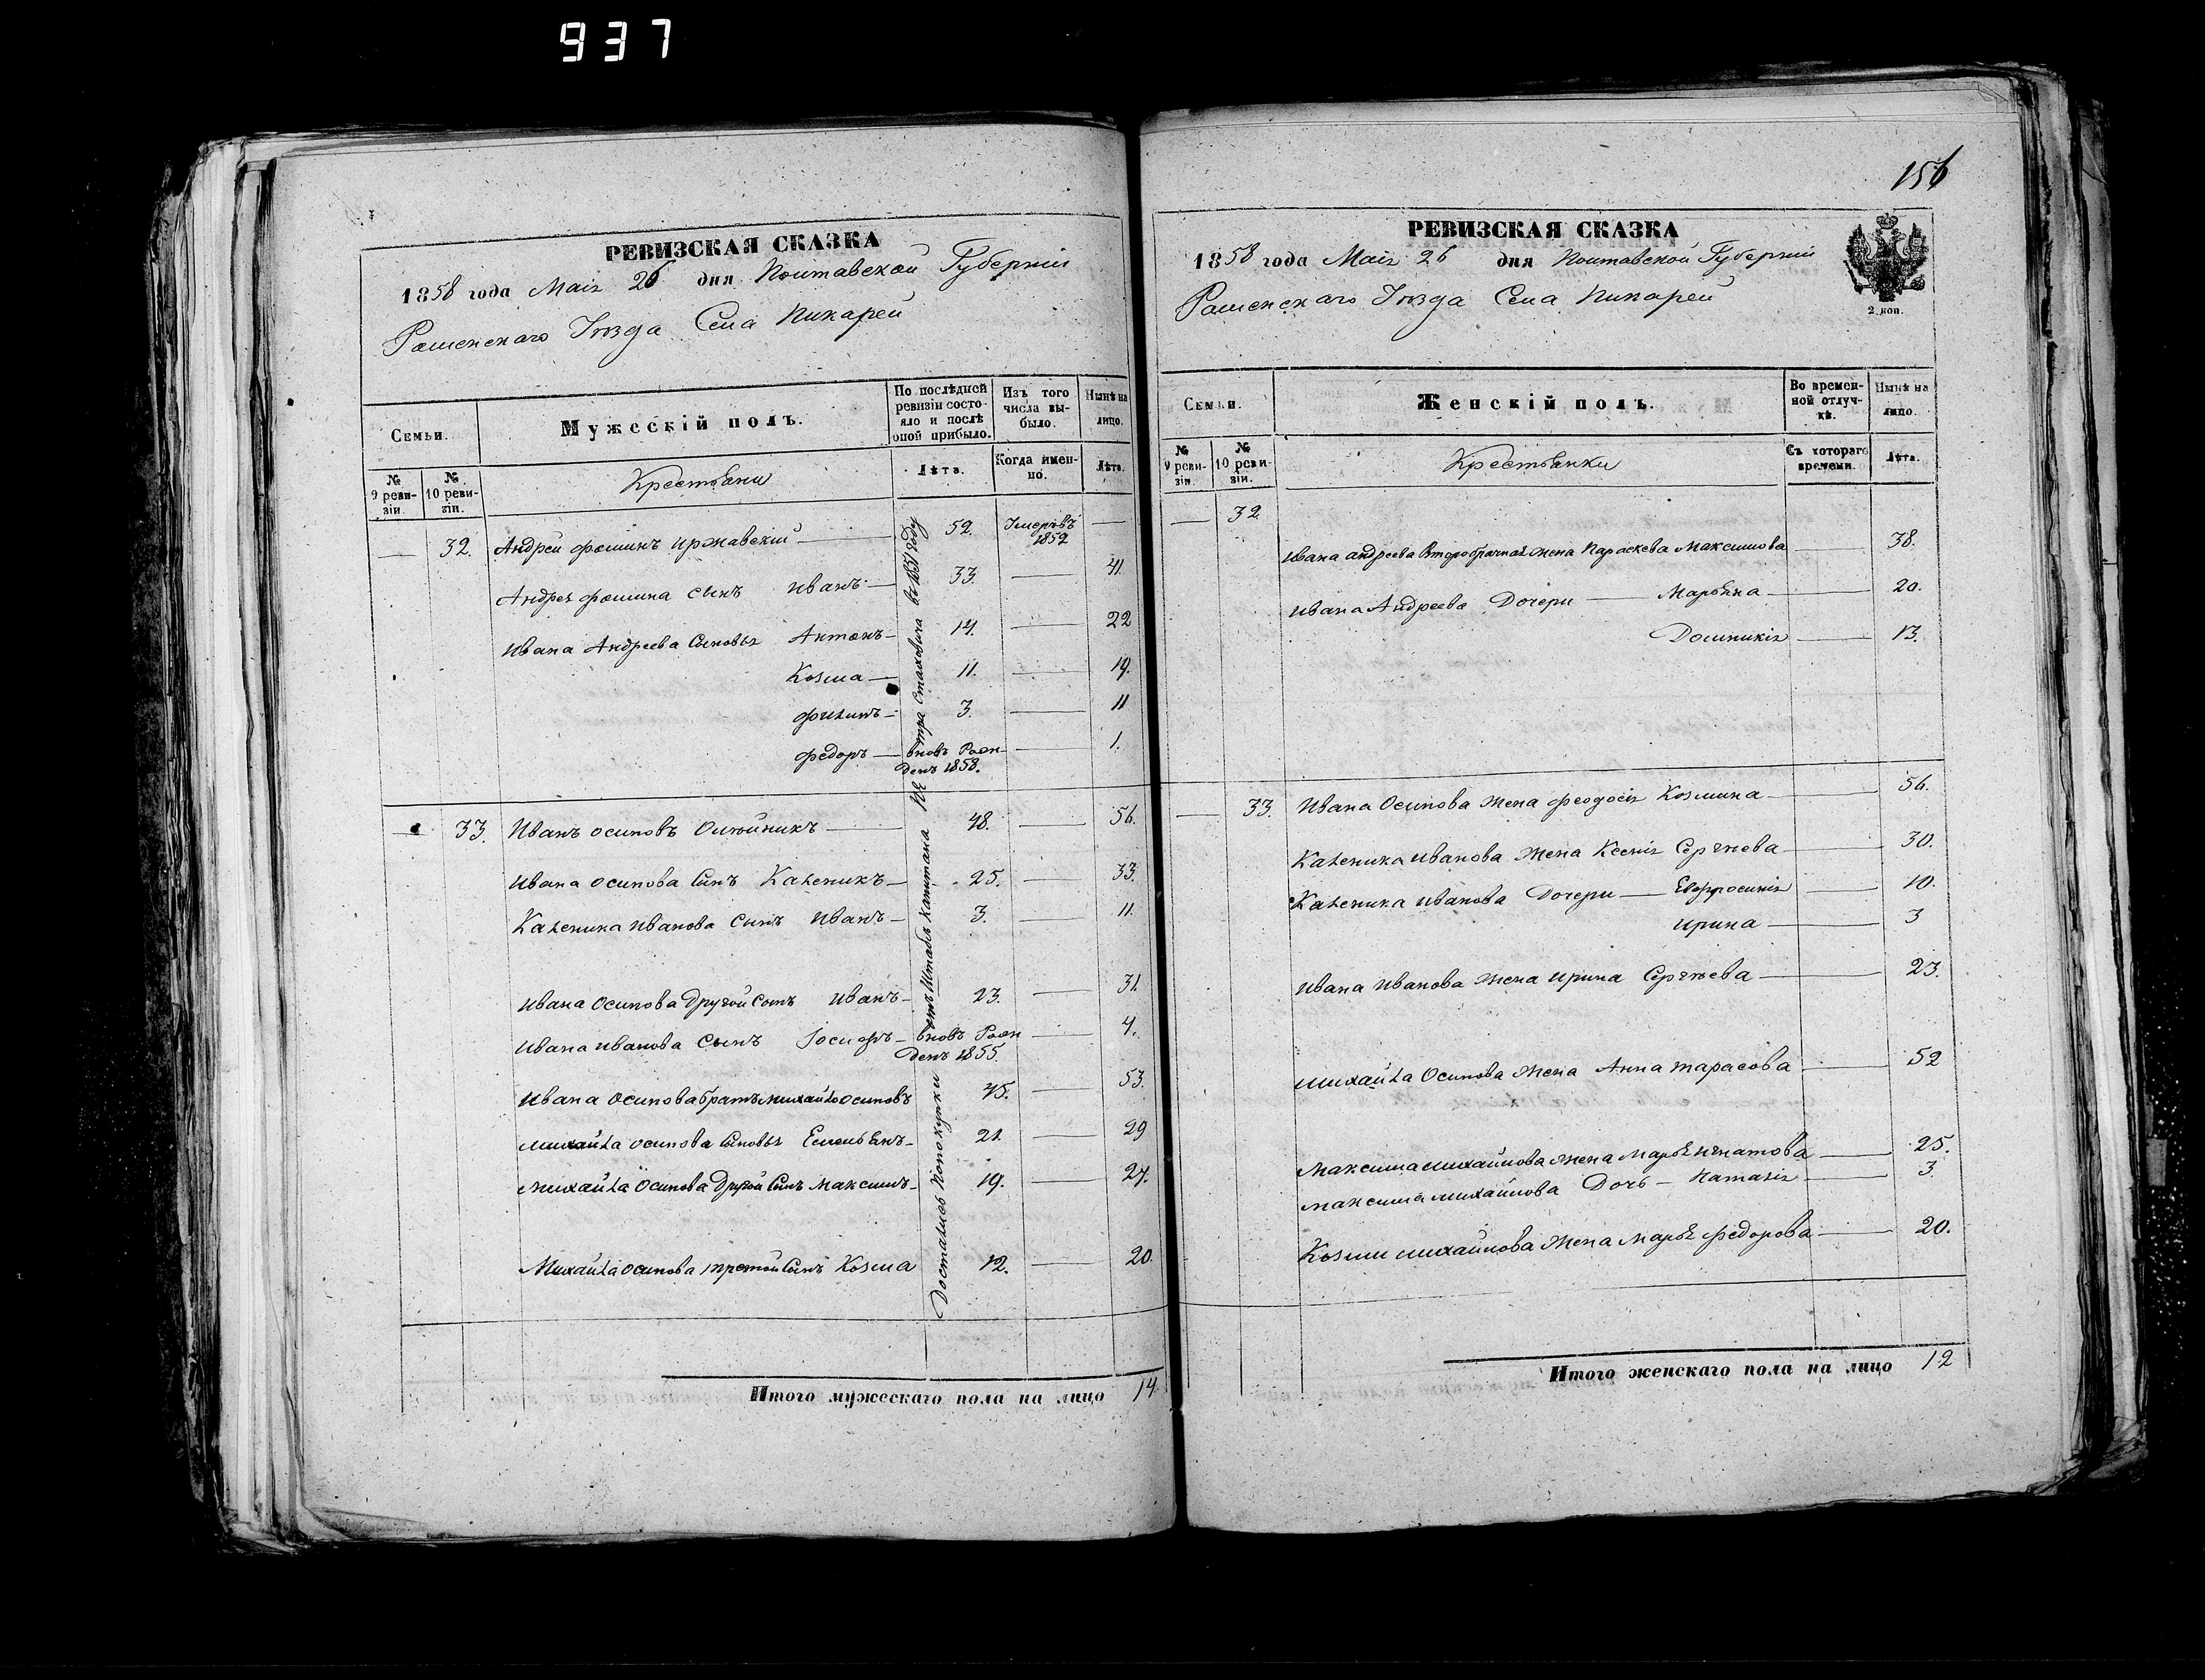 937
РЕВИЗСКАЯ СКАЗКА
1858 года Маія 26 дня Полтавской Губерніи
Роменского Уѣзда Села Пикарей
Семьи.
Мужескій полъ.
По послѣдней ревизіи состояло и послѣ оной прибыло.
Изъ того числа выбыло.
Нынѣ на лицо.
№ 9 ревизіи.
№ 10 ревизіи.
Крестьяни
Лѣта.
Когда именно.
Лѣта.
— 32. Андрей фоминъ Иржавскій — 52. Умеръвъ 1852 —
Андрея фомина сынъ Иванъ — 33. — 41.
Ивана Андреева Сыновья Антонъ — 14. — 22
Козма — 11. — 19.
филипъ — 3. — 11
федоръ — вновь Рожденъ 1858. — 1.
— 33. Иванъ осиповъ Олѣйникъ — 48. — 56.
Ивана осипова Сынъ Каленикъ — 25. — 33.
Каленика Иванова Сынъ Иванъ — 3. — 11.
Ивана Осипова Другой Сынъ Иванъ — 23. — 31.
Ивана Иванова Сынъ Іосифъ — вновь Рожденъ 1855. — 4.
Ивана Осипова братъ михайло осиповъ 45. — 53.
михайла осипова Сыновья Емельянъ — 21. — 29
михайла Осипова Другой Сынъ максимъ — 19. — 27.
Михайла осипова третой Сынъ Козма 12. — 20.
Достались По покупки отъ Штабъ капитана Пстра Стаховича въ 1851 году
Итого мужескаго пола на лицо 14.
156
РЕВИЗСКАЯ СКАЗКА
1858 года Маія 26 дня Полтавской Губерніи
Роменского Уѣзда Села Пикарей
2 коп.
Семьи.
Женскій полъ.
Во временной отлучкѣ.
Нынѣ на лицо.
№ 9 ревизіи.
№ 10 ревизіи.
Крестьянки
Съ котораго времени.
Лѣта.
— 32.
Ивана андреева Второбрачная жена Параскева Максимова — 38.
Ивана Андреева Дочери — Марьяна — 20.
Домникія — 13.
— 33. Ивана Осипова жена феодосія Козмина — 56.
Каленика Иванова жена Ксенія Сергѣева — 30.
Каленика Иванова Дочери — Евфросинія — 10.
Ирина — 3
Ивана Иванова жена Ирина Сергѣева — 23.
михайла Осипова жена Анна тарасова — 52
максима михайлова жена Марья Игнатова — 25.
максима михайлова Дочь — Наталія — 3.
Козми михайлова жена Марья федорова — 20.
Итого женскаго пола на лицо 12